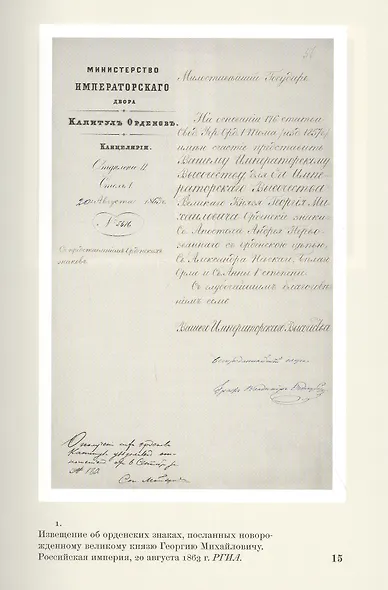 МИНИСТЕРСТВО
ИМПЕРАТОРСКАГО
ДВОРА
КАПИТУЛЪ ОРДЕНОВЪ.
КАНЦЕЛЯРІЯ.
Отдѣленіе II
Столъ 1
20го Августа 1863 г.
№ 5616
Съ представленіемъ Орденскихъ
знаковъ
Милостивѣйшій Государь
На основаніи 176 статьи
Св: Учр. Орд: 1 Тома (изд: 1857 г.)
имѣю счастіе представить
Вашему Императорскому
Высочеству для Его Импе-
раторскаго Высочества
Великаго Князя Георгія Ми-
хаиловича Орденскіе знаки
Св. Апостола Андрея Перво-
званнаго съ орденскою цѣпью,
Св. Александра Невскаго, Бѣлаго
Орла и Св. Анны 1 степени.
Съ глубочайшимъ благоговѣ-
ніемъ
Вашего Императорскаго Высочества
1.
Извещение об орденских знаках, посланных новоро-
жденному великому князю Георгию Михайловичу.
Российская империя, 20 августа 1863 г. РГИА.
15